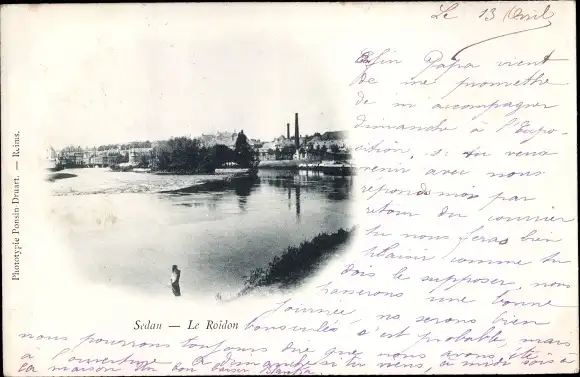 Le 13 Avril
Enfin Papa vient
de me promettre
de m'accompagner
dimanche à l'Expo-
sition, si tu veux
venir avec nous
reponds moi par
retour du courrier
tu nous feras bien
plaisir comme tu
dois le supposer, nous
passerons une bonne
journée, ns serons bien
bousculés c'est probable, mais
nous pourrons toujours dire que nous avons été
à l'ouverture. A dimanche si tu viens, à midi sois à
la maison un bon baiser
Sedan — Le Roidon
Phototypie Ponsin-Druart. — Reims.